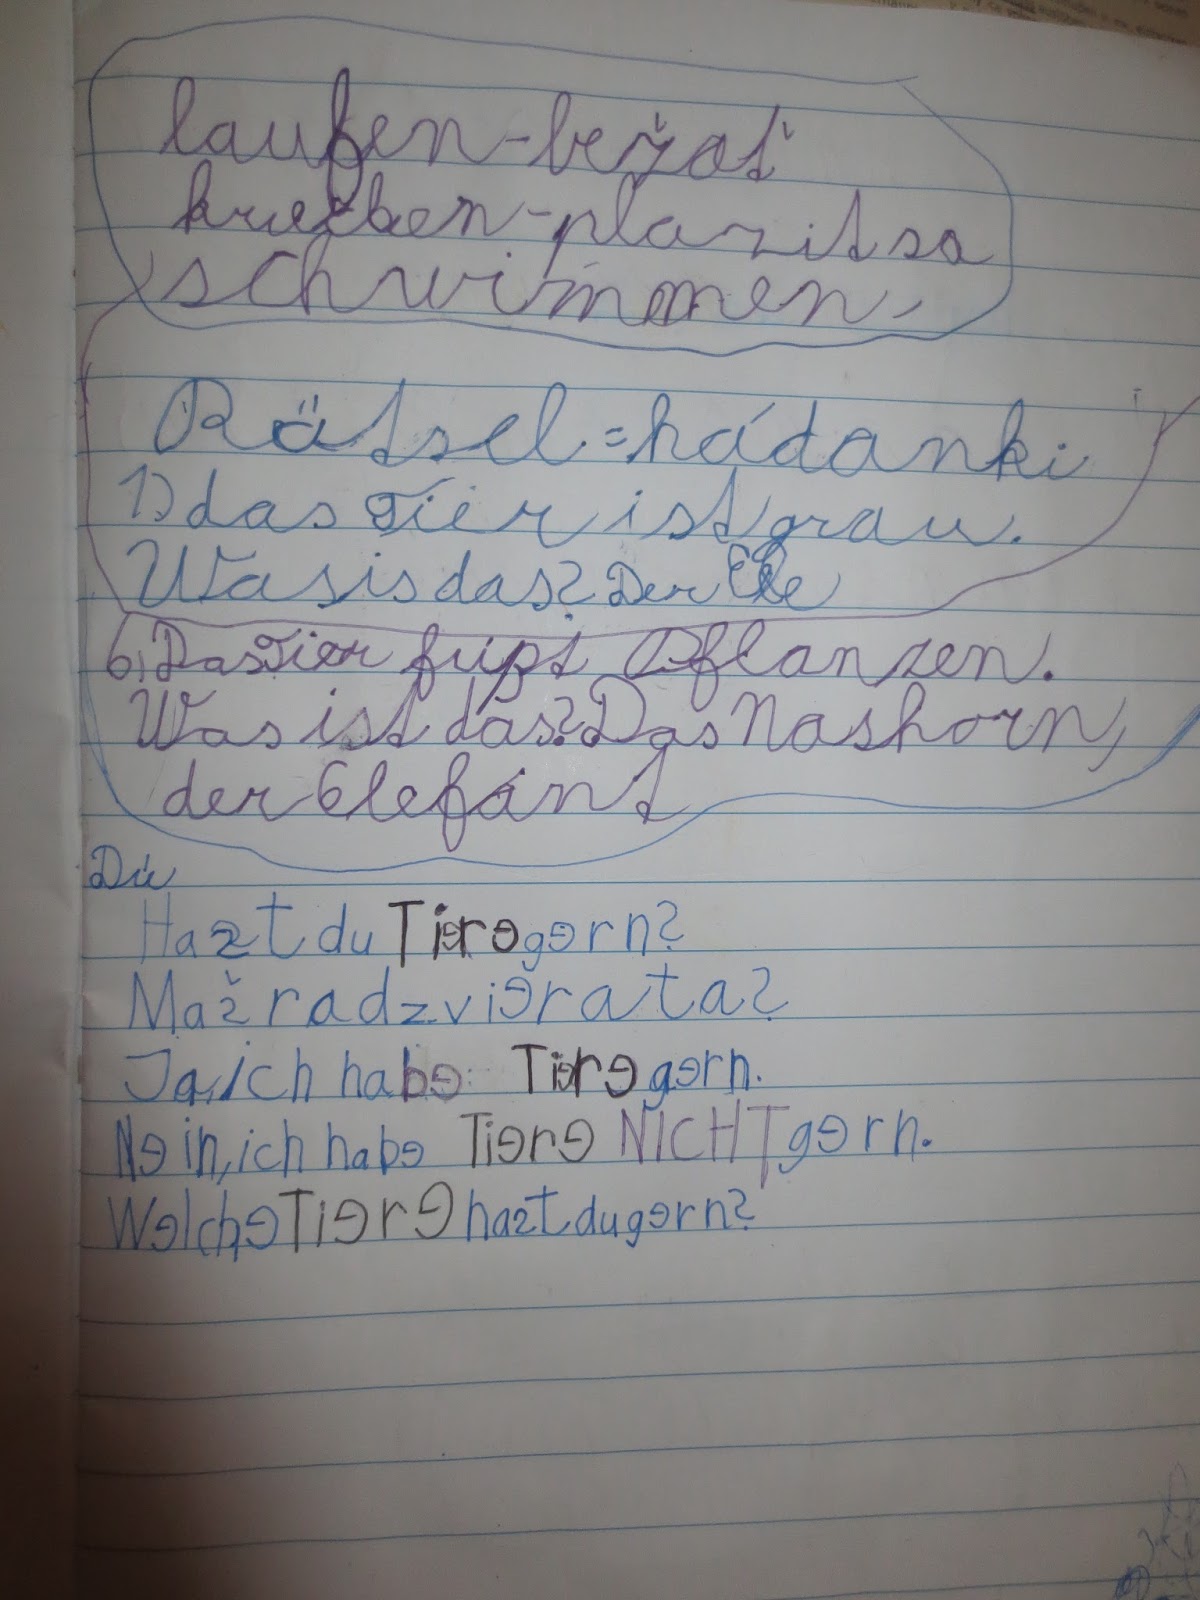 laufen-bežať
kriechen-plazit sa
schwimmen,
Rätsel=hádanki
1) das Tier ist grau.
Was is das? Der Ele
6, Das Tier fripst Pflanzen.
Was ist das? Das Nashorn,
der Elefant
Du
Hast du Tiere gern?
Máž rad zvierata?
Ja, ich habe Tiere gern.
Nein, ich habe Tiere NICHT gern.
Welche Tiere hast du gern?